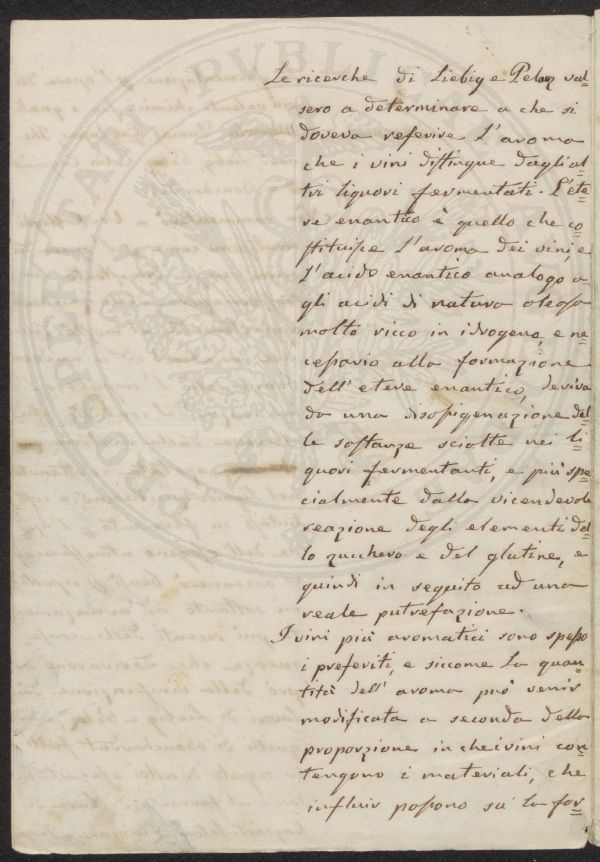 Le ricerche di Liebig e Pelouz val=
sero a determinare a che si
doveva referire l'aroma
che i vini distingue dagli al=
tri liquori fermentati. L'ete=
re enantico è quello che co=
stituisce l'aroma dei vini, e
l'acido enantico analogo a
gli acidi di natura oleosa
molto ricco in idrogeno, e ne=
cessario alla formazione
dell'etere enantico, deriva
da una disossigenazione del=
le sostanze sciolte nei li=
quori fermentanti, e più spe=
cialmente dalla vicendevole
reazione degli elementi del=
lo zucchero e del glutine, e
quindi in seguito ad una
reale putrefazione.
I vini più aromatici sono spesso
i preferiti, e siccome la quan=
tità dell'aroma può venir
modificata a seconda della
proporzione in che i vini con=
tengono i materiali, che
influir possono su la for=